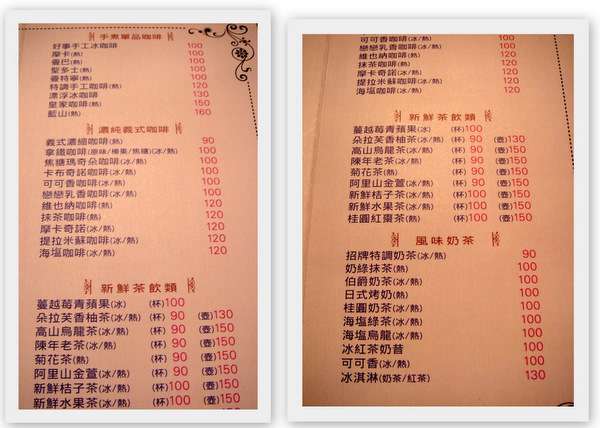 手煮單品咖啡
好事手工冰咖啡 100
摩卡(熱) 100
曼巴(熱) 100
聖多士(熱) 100
曼特寧(熱) 100
特調手工咖啡(熱) 120
漂浮冰咖啡 130
皇家咖啡(熱) 150
藍山(熱) 160
濃純義式咖啡
義式濃縮咖啡(熱) 90
拿鐵咖啡(原味/榛果/焦糖)(冰/熱) 100
焦糖瑪奇朵咖啡(冰/熱) 120
卡布奇諾咖啡(冰/熱) 120
可可香咖啡(冰/熱) 120
戀戀乳香咖啡(冰/熱) 120
維也納咖啡(熱) 120
抹茶咖啡(熱) 120
摩卡奇諾(冰/熱) 120
提拉米蘇咖啡(冰/熱) 120
海塩咖啡(冰/熱) 120
新鮮茶飲類
蔓越莓青蘋果(冰) (杯)100
朵拉芙香柚茶(冰/熱) (杯) 90 (壺)130
高山烏龍茶(冰/熱) (杯) 90 (壺)150
陳年老茶(冰/熱) (杯) 90 (壺)150
菊花茶(熱) (杯) 90 (壺)150
阿里山金萱(冰/熱) (杯) 90 (壺)150
新鮮桔子茶(冰/熱) (杯)100 (壺)150
新鮮水果茶(冰/熱) (杯)100 (壺)150
可可香咖啡(冰/熱) 120
戀戀乳香咖啡(冰/熱) 120
維也納咖啡(熱) 120
抹茶咖啡(熱) 120
摩卡奇諾(冰/熱) 120
提拉米蘇咖啡(冰/熱) 120
海塩咖啡(冰/熱) 120
新鮮茶飲類
蔓越莓青蘋果(冰) (杯)100
朵拉芙香柚茶(冰/熱) (杯) 90 (壺)130
高山烏龍茶(冰/熱) (杯) 90 (壺)150
陳年老茶(冰/熱) (杯) 90 (壺)150
菊花茶(熱) (杯) 90 (壺)150
阿里山金萱(冰/熱) (杯) 90 (壺)150
新鮮桔子茶(冰/熱) (杯)100 (壺)150
新鮮水果茶(冰/熱) (杯)100 (壺)150
桂圓紅棗茶(熱) (杯)100 (壺)150
風味奶茶
招牌特調奶茶(冰/熱) 90
奶綠抹茶(熱) 100
伯爵奶茶(冰/熱) 100
日式烤奶(熱) 100
桂圓奶茶(冰/熱) 100
海塩綠茶(冰/熱) 100
海塩烏龍(冰/熱) 100
冰紅茶奶昔 100
可可香(冰/熱) 100
冰淇淋(奶茶/紅茶) 130